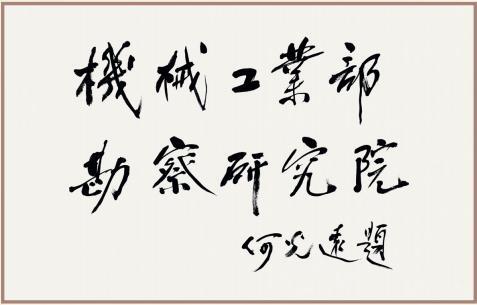 機械工業部
勘察研究院
何光遠題